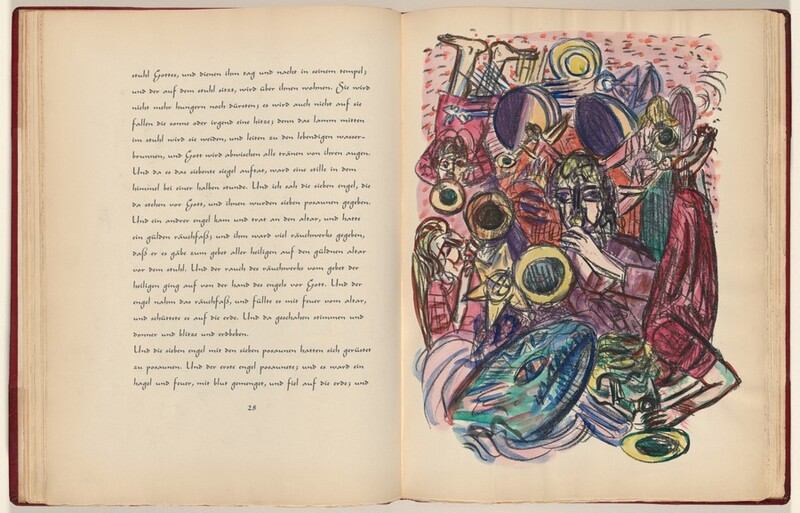 stuhl Gottes, und dienen ihm tag und nacht in seinem tempel;
und der auf dem stuhl sitzt, wird über ihnen wohnen. Sie wird
nicht mehr hungern noch dürsten; es wird auch nicht auf sie
fallen die sonne oder irgend eine hitze; denn das lamm mitten
im stuhl wird sie weiden, und leiten zu den lebendigen wasser-
brunnen, und Gott wird abwischen alle tränen von ihren augen.
Und da es das siebente siegel auftat, ward eine stille in dem
himmel bei einer halben stunde. Und ich sah die sieben engel, die
da stehen vor Gott, und ihnen wurden sieben posaunen gegeben.
Und ein andrer engel kam und trat an den altar, und hatte
ein gülden räuchfaß; und ihm ward viel räuchwerks gegeben,
daß er es gäbe zum gebet aller heiligen auf den güldnen altar
vor dem stuhl. Und der rauch des räuchwerks vom gebet der
heiligen ging auf von der hand des engels vor Gott. Und der
engel nahm das räuchfaß, und füllte es mit feuer vom altar,
und schüttete es auf die erde. Und da geschahen stimmen und
donner und blitze und erdbeben.
Und die sieben engel mit den sieben posaunen hatten sich gerüstet
zu posaunen. Und der erste engel posaunete; und es ward ein
hagel und feuer, mit blut gemenget, und fiel auf die erde; und
28